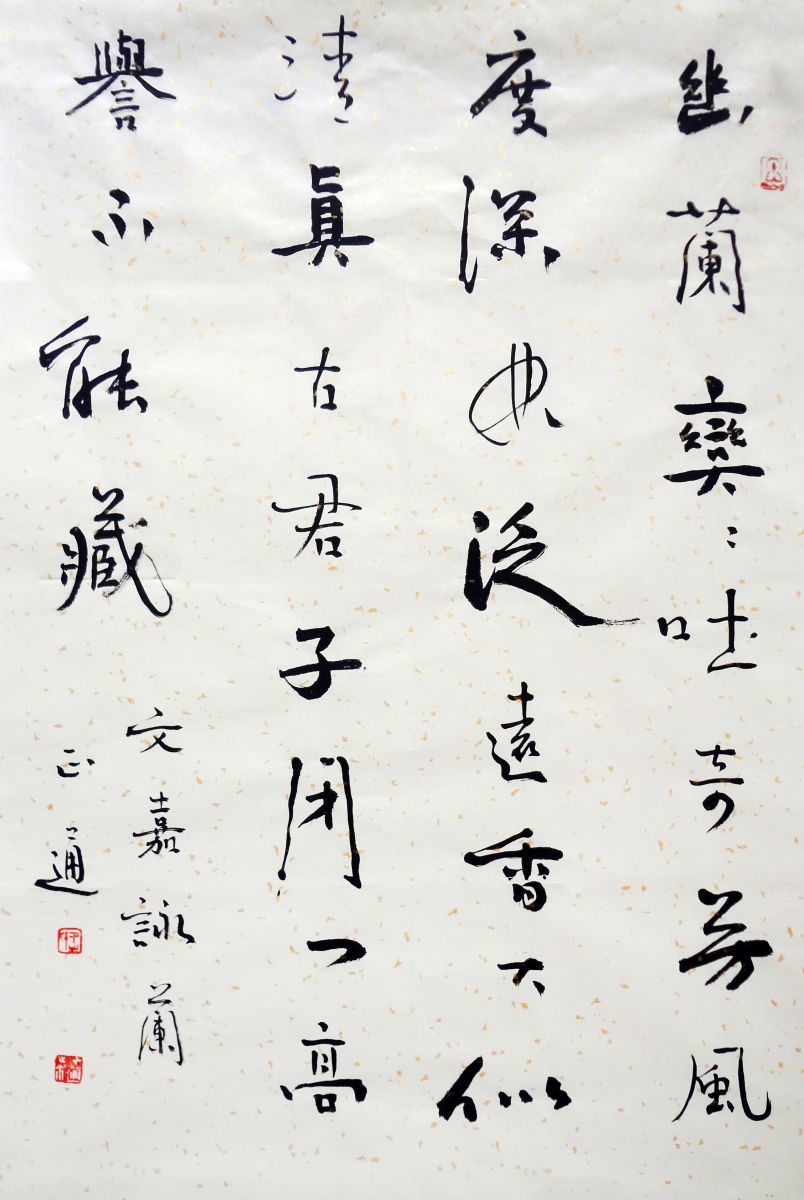 幽蘭奕〻吐奇芳風
度深泛遠香大似
清真古君子閉門高
譽不能藏
文嘉詠蘭
正通